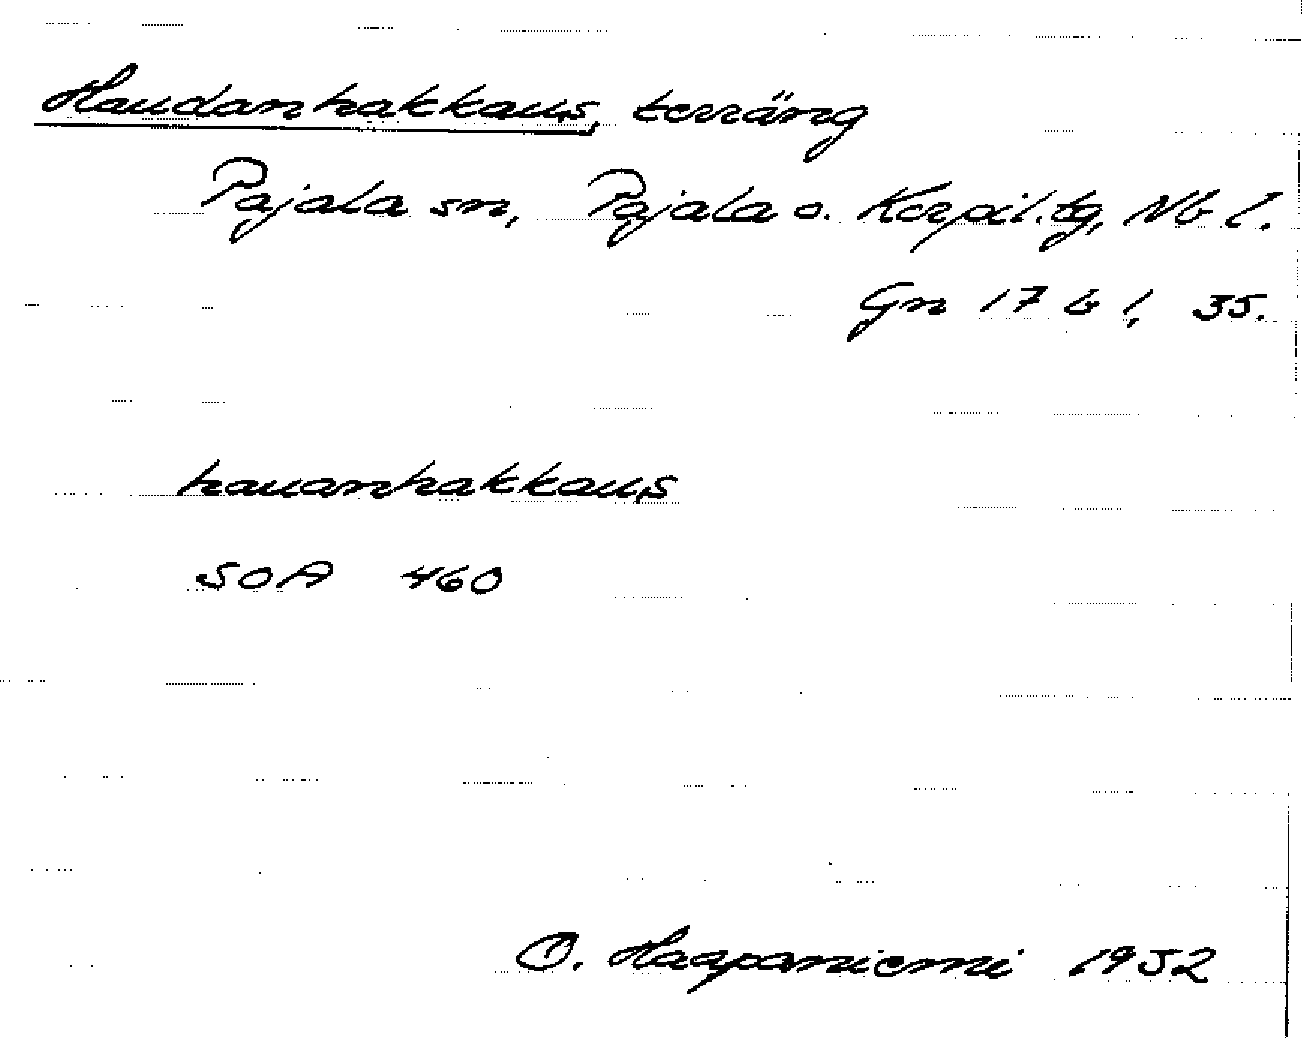 Haudanhakkaus, terräng
Pajala sn, Pajala o. Korpil. tg, Nb l.
Gn 17 b l, 35.
hauanhakkaus
SOA 460
O. Haapaniemi 1952